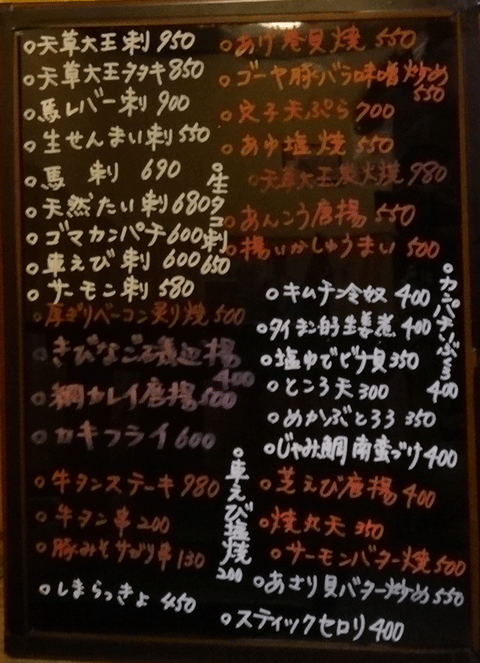 ○天草大王刺 950
○天草大王タタキ 850
○馬レバー刺 900
○生せんまい刺 550
○馬刺 690
○天然たい刺 680
○ゴマカンパチ 600
○車えび刺 600
○サーモン刺 580
○生タコ刺 650
○厚ぎりベーコン炙り焼 500
○きびなご磯辺揚 400
○鯛カレイ唐揚 500
○カキフライ 600
○牛タンステーキ 980
○牛タン串 200
○豚みそサガリ串 130
○しまらっきょ 450
○車えび塩焼 200
○あげ巻貝焼 550
○ゴーヤ豚バラ味噌炒め 550
○穴子天ぷら 700
○あゆ塩焼 550
○天草大王炭火焼 980
○あんこう唐揚 550
○揚いかしゅうまい 500
○カンパチぶつ 400
○キムチン冷奴 400
○塩ゆでビナ貝 350
○ところ天 300
○めかぶとろろ 350
○じゃみ鯛南蛮づけ 400
○芝えび唐揚 400
○焼丸天 350
○サーモンバター焼 500
○あさり貝バター炒め 550
○スティックセロリ 400